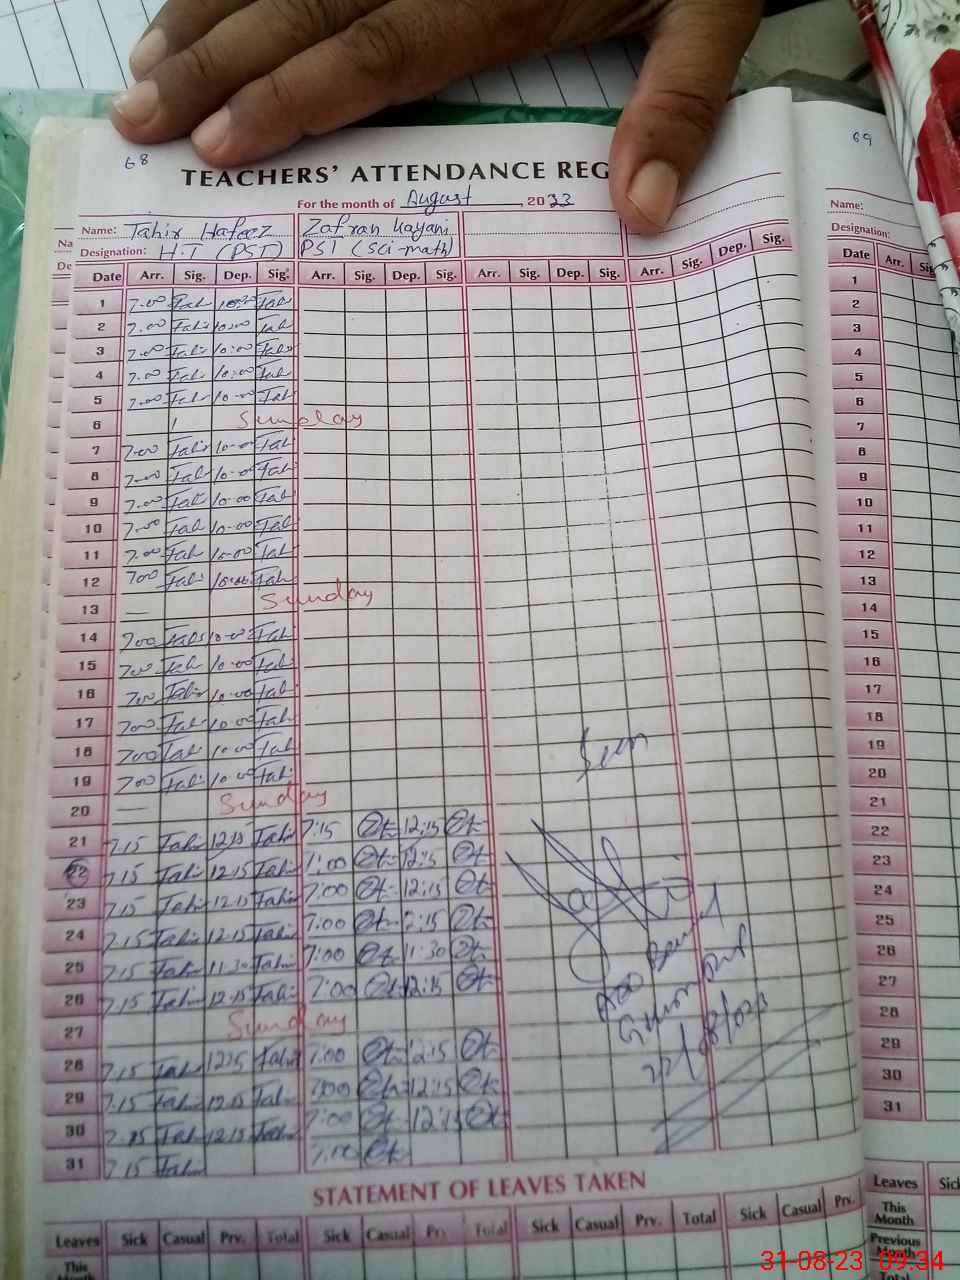 68
69
TEACHERS' ATTENDANCE REG
For the month of August, 2023
Name: Tahir Hafeez Zafran Kayani
Designation: H.T (PST) PST (Sci-math)
Name:
Designation:
Date Arr. Sig. Dep. Sig. Arr. Sig. Dep. Sig. Arr. Sig. Dep. Sig. Arr. Sig. Dep. Sig.
Date Arr. Sig
1 7.00 Tah 10:00 Tah
2 7.00 Tahi 10:00 Tah
3 7.00 Tahi 10:00 Tahi
4 7.00 Tahi 10:00 Tah
5 7.00 Tah 10:00 Tah
6 Sunday
7 7.00 Tahi 10.00 Tah
8 7.00 Tah 10.00 Tah
9 7.00 Tah 10.00 Tah
10 7.00 Tah 10.00 Tah
11 7.00 Tah 10.00 Tah
12 700 Tahi 10.00 Tah
13 — Sunday
14 700 Tahi 10.00 Tahi
15 700 Tah 10.00 Tah
16 700 Tahi 10.00 Tah
17 700 Tah 10.00 Tah
18 700 Tah 10.00 Tah
19 700 Tahi 10.00 Tahi
20 — Sunday
21 7.15 Tahi 12.15 Tahi 7:15 12:15
22 7.15 Tahi 12.15 Tahi 7:00 12:15
23 7.15 Tahi 12.15 Tahi 7:00 12:15
24 7.15 Tahi 12.15 Tahi 7:00 12:15
25 7.15 Tahi 11.30 Tahi 7:00 11:30
26 7.15 Tahi 12.15 Tahi 7:00 12:15
27 Sunday
28 7.15 Tahi 12.15 Tahi 7:00 12:15
29 7.15 Tahi 12.15 Tahi 7:00 12:15
30 7.15 Tahi 12.15 Tahi 7:00 12:15
31 7.15 Tahi 7:00
1
2
3
4
5
6
7
8
9
10
11
12
13
14
15
16
17
18
19
20
21
22
23
24
25
26
27
28
29
30
31
STATEMENT OF LEAVES TAKEN
Leaves Sick Casual Prv. Total Sick Casual Prv. Total Sick Casual Prv. Total Sick Casual Prv.
This
Month
Leaves Sick
This
Month
Previous
Month
Total
31-08-23 09:34